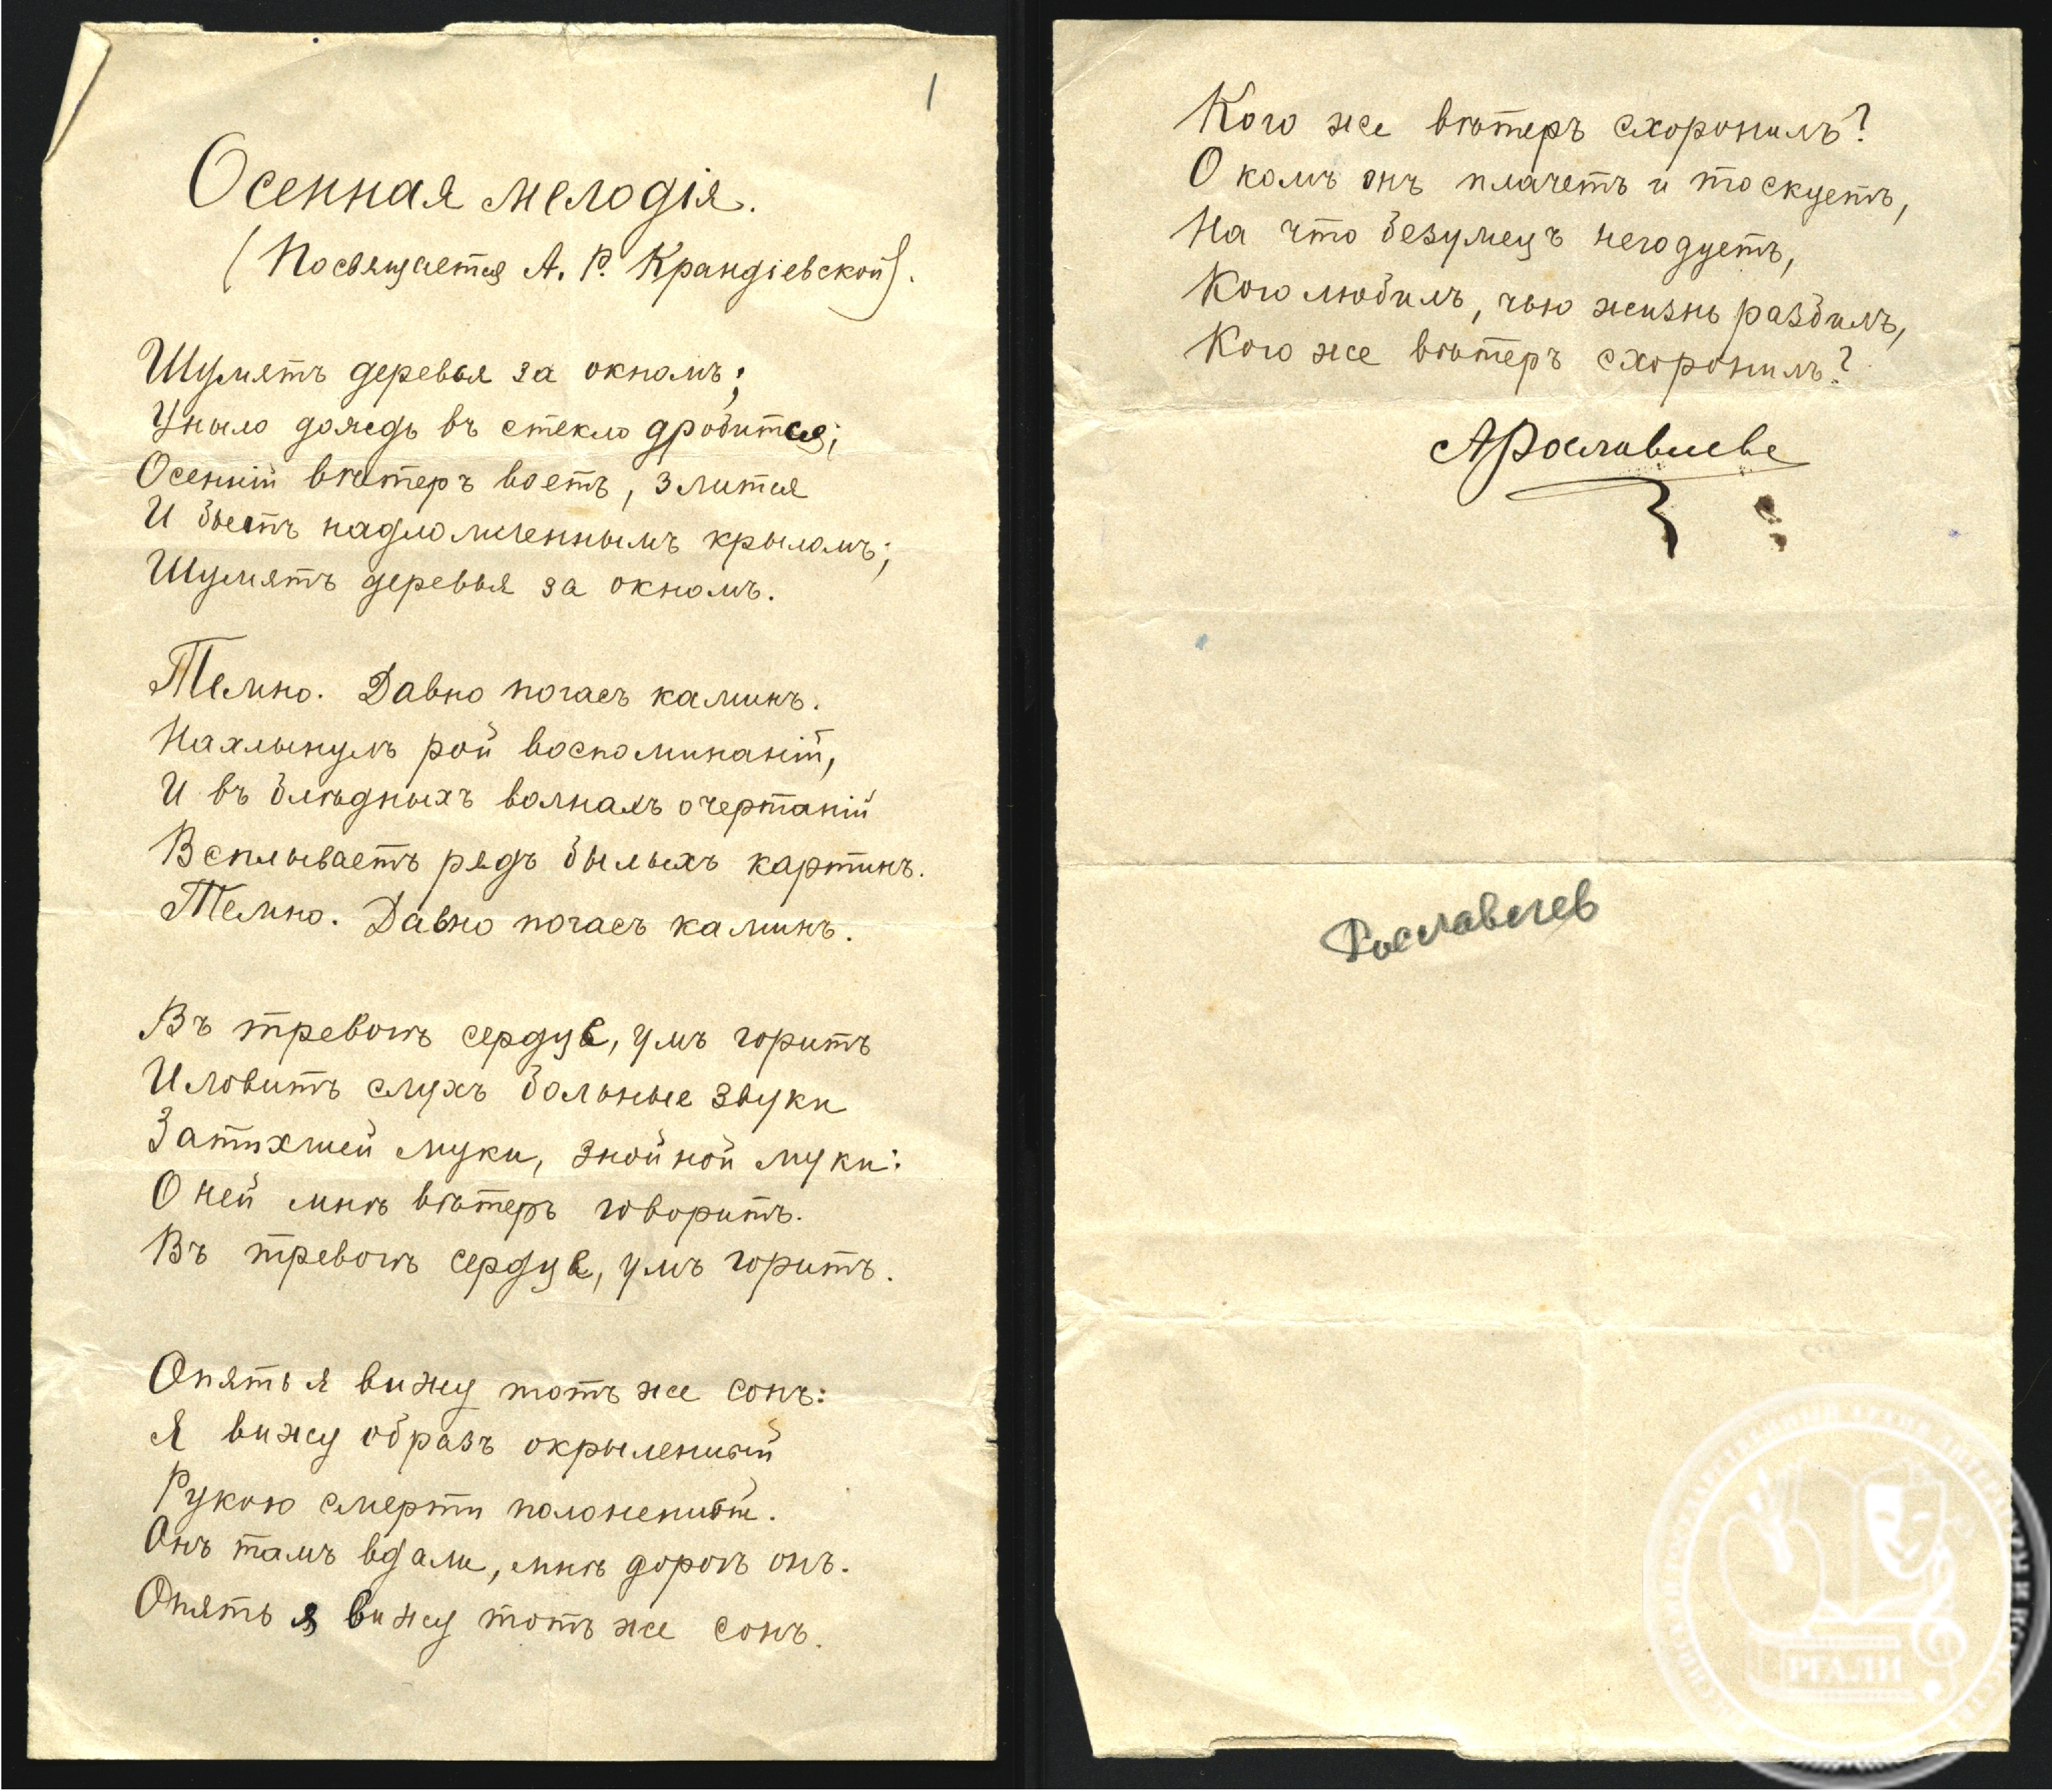 1
Осенняя мелодія.
(Посвящается А. Р. Крандіевской).
Шумятъ деревья за окномъ;
Уныло дождь въ стекло дробится;
Осенній вѣтеръ воетъ, злится
И бьетъ надломленнымъ крыломъ;
Шумятъ деревья за окномъ.
Темно. Давно погасъ каминъ.
Нахлынулъ рой воспоминаній,
И въ блѣдныхъ волнахъ очертаній
Всплываетъ рядъ былыхъ картинъ.
Темно. Давно погасъ каминъ.
Въ тревогѣ сердце, умъ горитъ
И ловитъ слухъ больные звуки
Затихшей муки, знойной муки:
О ней мнѣ вѣтеръ говоритъ.
Въ тревогѣ сердце, умъ горитъ.
Опять я вижу тотъ же сонъ:
Я вижу образъ окрыленный
Рукою смерти полоненный.
Онъ тамъ вдали, мнѣ дорогъ онъ.
Опять я вижу тотъ же сонъ.
Кого же вѣтеръ схоронилъ?
О комъ онъ плачетъ и тоскуетъ,
На что безумецъ негодуетъ,
Кого любилъ, чью жизнь разбилъ,
Кого же вѣтеръ схоронилъ?
АРославлевъ
Рославлев
РГАЛИ